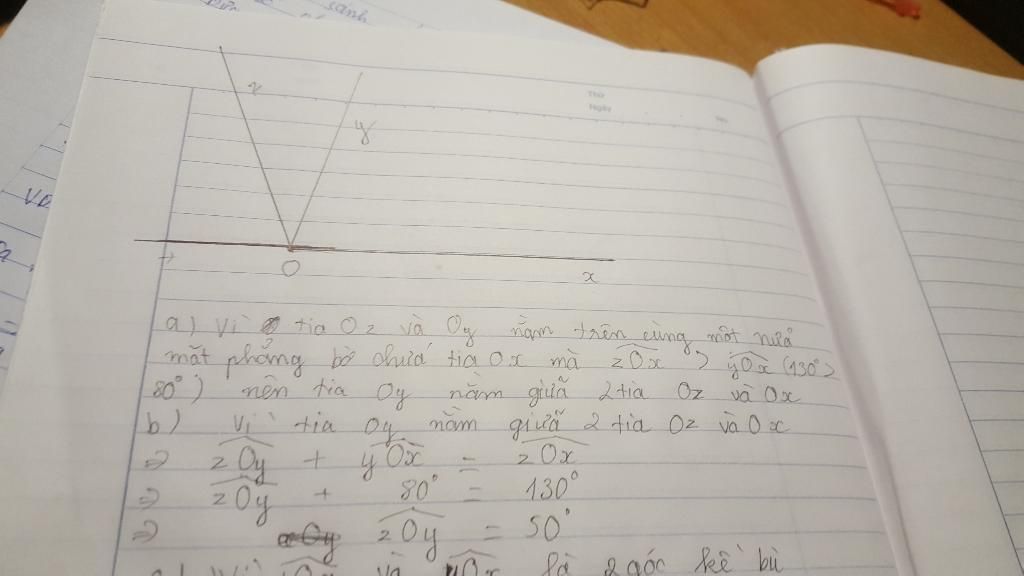 cạnh
z
y
Thứ
Ngày
No.
O
x
a) Vì tia Oz và Oy nằm trên cùng một nửa
mặt phẳng bờ chứa tia Ox mà zOx > yOx (130° >
80°) nên tia Oy nằm giữa 2 tia Oz và Ox
b) Vì tia Oy nằm giữa 2 tia Oz và Ox
=> zOy + yOx = zOx
=> zOy + 80° = 130°
=> zOy = 50°
và là 2 góc kề bù